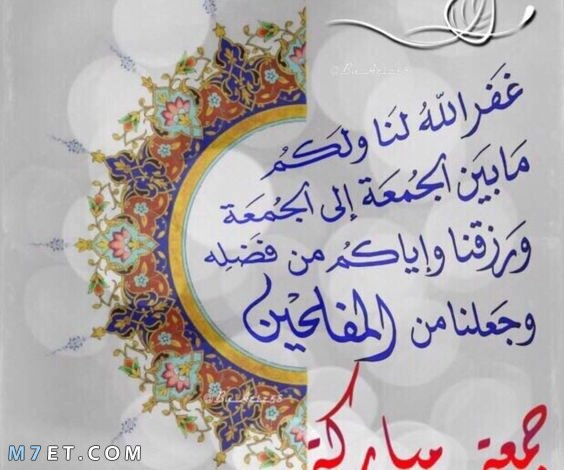 @Bu_Aziz58
غَفَر اللّٰهُ لنَا ولَكمُ
مَابَين الجُمعَة إلى الجُمعَة
وَرزقنا وإياكمُ من فَضَلِه
وجَعلنا من المفلحَين
@Bu_Aziz58
جمعة مباركة
M7ET.COM